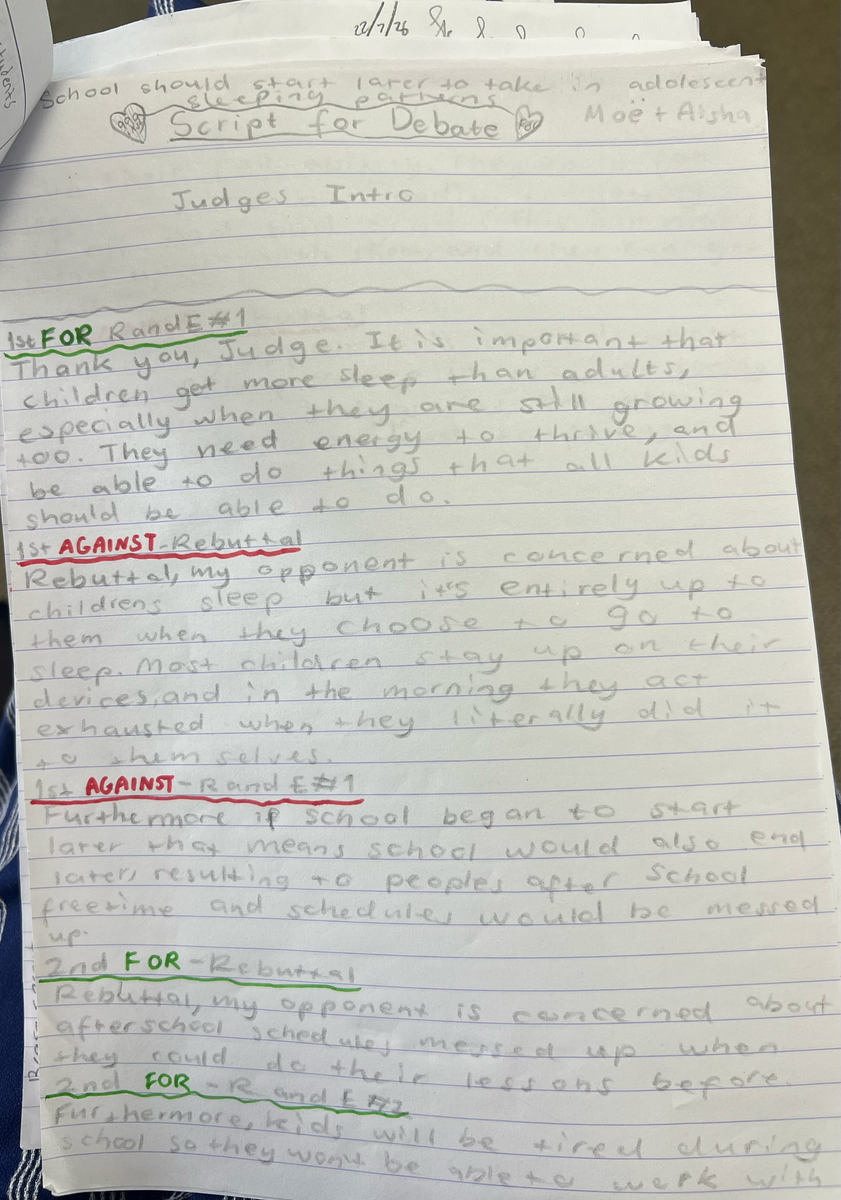 22/7/26
students
School should start later to take in adolescent
sleeping patterns
Script for Debate
FOR
Moë + Aisha
Judges Intro
1st FOR R and E #1
Thank you, Judge. It is important that
children get more sleep than adults,
especially when they are still growing
too. They need energy to thrive, and
be able to do things that all kids
should be able to do.
1st AGAINST - Rebuttal
Rebuttal, my opponent is concerned about
childrens sleep but it's entirely up to
them when they choose to go to
sleep. Most children stay up on their
devices, and in the morning they act
exhausted when they literally did it
to themselves.
1st AGAINST - R and E #1
Furthermore if school began to start
later that means school would also end
later, resulting to peoples after school
freetime and schedules would be messed
up.
2nd FOR - Rebuttal
Rebuttal, my opponent is concerned about
afterschool schedules messed up when
they could do their lessons before
2nd FOR - R and E #2
Furthermore, kids will be tired during
school so they wont be able to work with